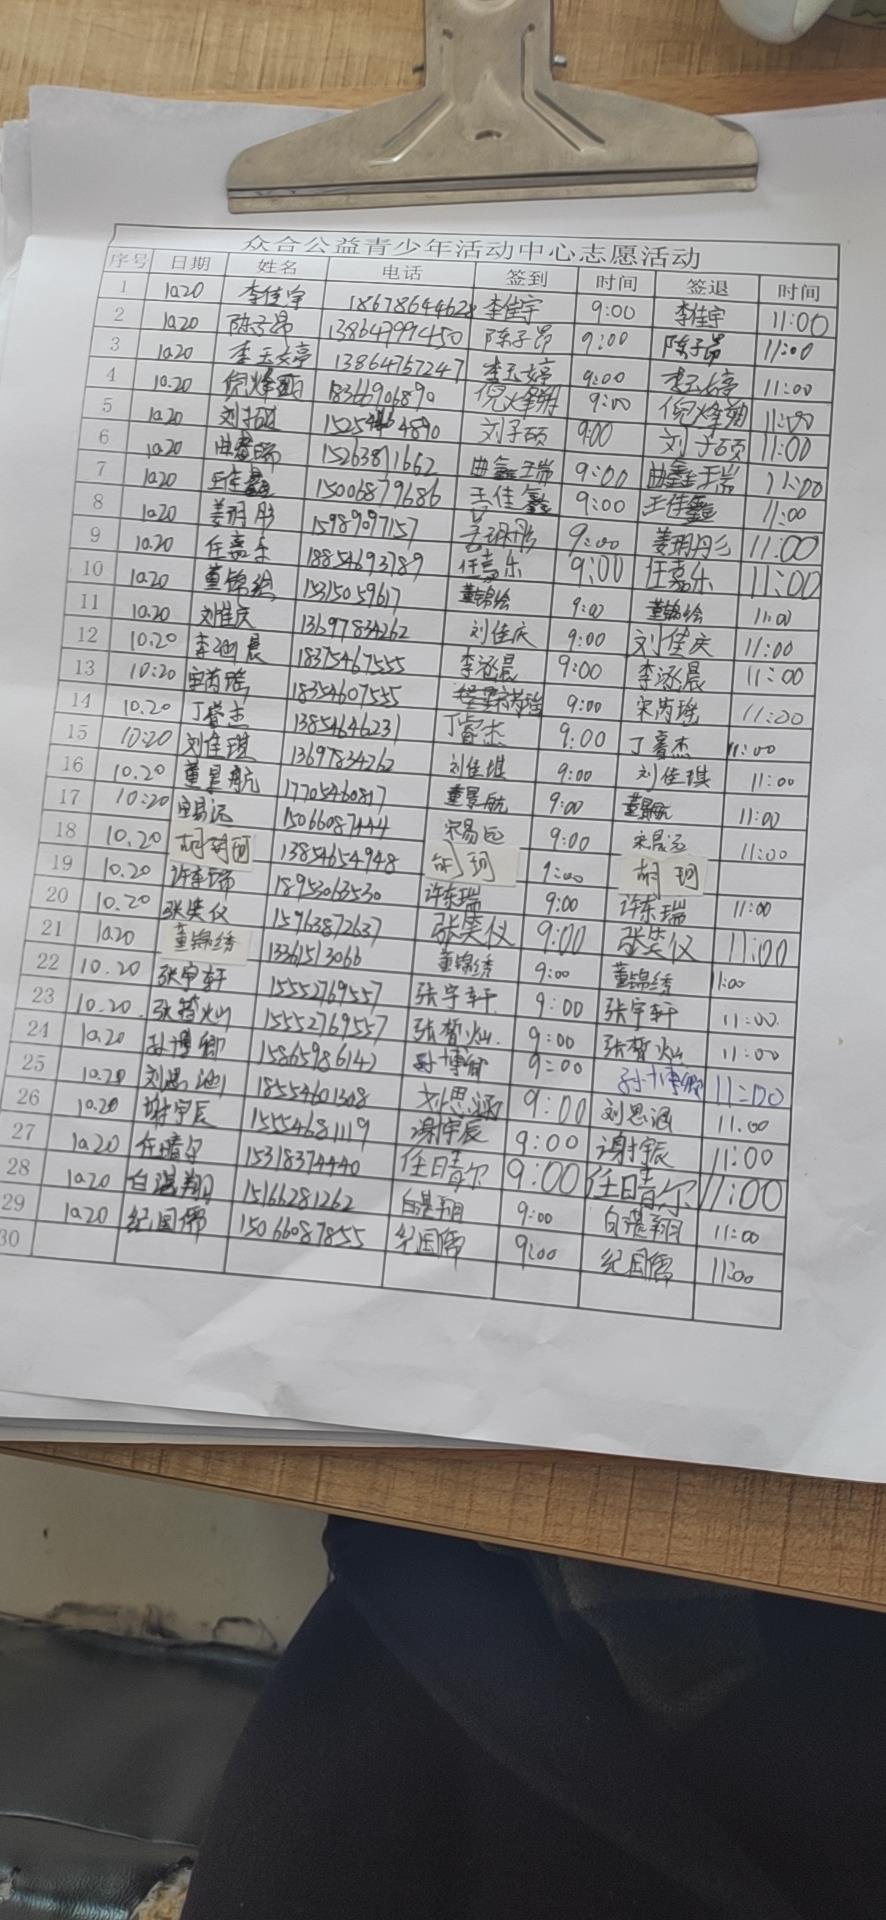 众合公益青少年活动中心志愿活动
序号 日期 姓名 电话 签到 时间 签退 时间
1 10.20 李佳宇 18678644628 李佳宇 9:00 李佳宇 11:00
2 10.20 陈子昂 13864799450 陈子昂 9:00 陈子昂 11:00
3 10.20 李玉婷 13864757247 李玉婷 9:00 李玉婷 11:00
4 10.20 倪烽翔 18366906890 倪烽翔 9:00 倪烽翔 11:00
5 10.20 刘子硕 刘子硕 9:00 刘子硕 11:00
6 10.20 曲鑫瑞 15263811662 曲鑫瑞 9:00 曲鑫瑞 11:00
7 10.20 王佳鑫 15006879686 王佳鑫 9:00 王佳鑫 11:00
8 10.20 姜玥彤 15989097157 9:00 姜玥彤 11:00
9 10.20 任嘉乐 18854693789 任嘉乐 9:00 任嘉乐 11:00
10 10.20 董锦绘 15315059617 董锦绘 9:00 董锦绘 11:00
11 10.20 刘佳庆 13697834262 刘佳庆 9:00 刘佳庆 11:00
12 10.20 李涵晨 18375467555 李涵晨 9:00 李涵晨 11:00
13 10:20 宋芮瑶 18354607555 宋芮瑶 9:00 宋芮瑶 11:00
14 10.20 丁睿杰 1385464623 丁睿杰 9:00 丁睿杰 11:00
15 10:20 刘佳琪 13697834262 刘佳琪 9:00 刘佳琪 11:00
16 10.20 董景航 17705460817 董景航 9:00 董景航 11:00
17 10:20 宋易远 15066087444 宋易远 9:00 宋易远 11:00
18 10.20 胡珂 13854654948 胡珂 9:00 胡珂
19 10.20 许东瑞 18953063530 许东瑞 9:00 许东瑞 11:00
20 10.20 张笑仪 15963872637 张笑仪 9:00 张笑仪 11:00
21 10.20 董锦绣 13361513066 董锦绣 9:00 董锦绣 11:00
22 10.20 张宇轩 15552769557 张宇轩 9:00 张宇轩 11:00
23 10.20 张皙灿 15552769557 张皙灿 9:00 张皙灿 11:00
24 10.20 孙博卿 15865986142 孙博卿 9:00 孙博卿 11:00
25 10.20 刘思涵 18554601308 刘思涵 9:00 刘思涵 11.00
26 10.20 谢宇辰 15554681119 谢宇辰 9:00 谢宇辰 11:00
27 10.20 任晴尔 15318374440 任晴尔 9:00 任晴尔 11:00
28 10.20 白湛翔 15166281262 白湛翔 9:00 白湛翔 11:00
29 10.20 纪国儒 15066087855 纪国儒 9:00 纪国儒 11:00
30